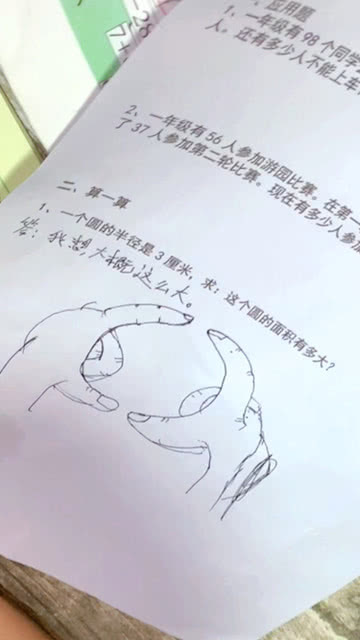 -28
7+
应用题
1、一年级有98个同学
人。还有多少人不能上车
2、一年级有56人参加游园比赛。在第一
了37人参加第二轮比赛。现在有多少人参加
二、算一算
1、一个圆的半径是3厘米，求：这个圆的面积有多大？
答：我想，大概这么大。